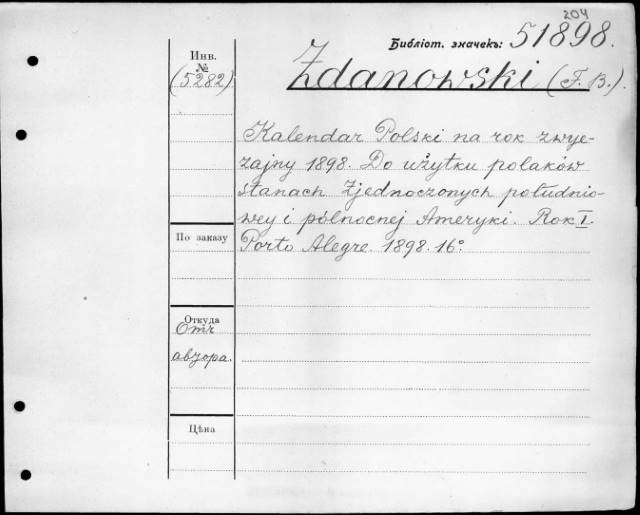 204
Библіот. значекъ: 51898.
Инв.
№
(5282)
Zdanowski (F. B.).
Kalendar Polski na rok zwye-
zajny 1898. Do użytku polaków
stanach Zjednoczonych południo-
wey i północnej Ameryki. Rok I.
Porto Alegre. 1898. 16°
По заказу
Откуда
Отъ
автора.
Цѣна